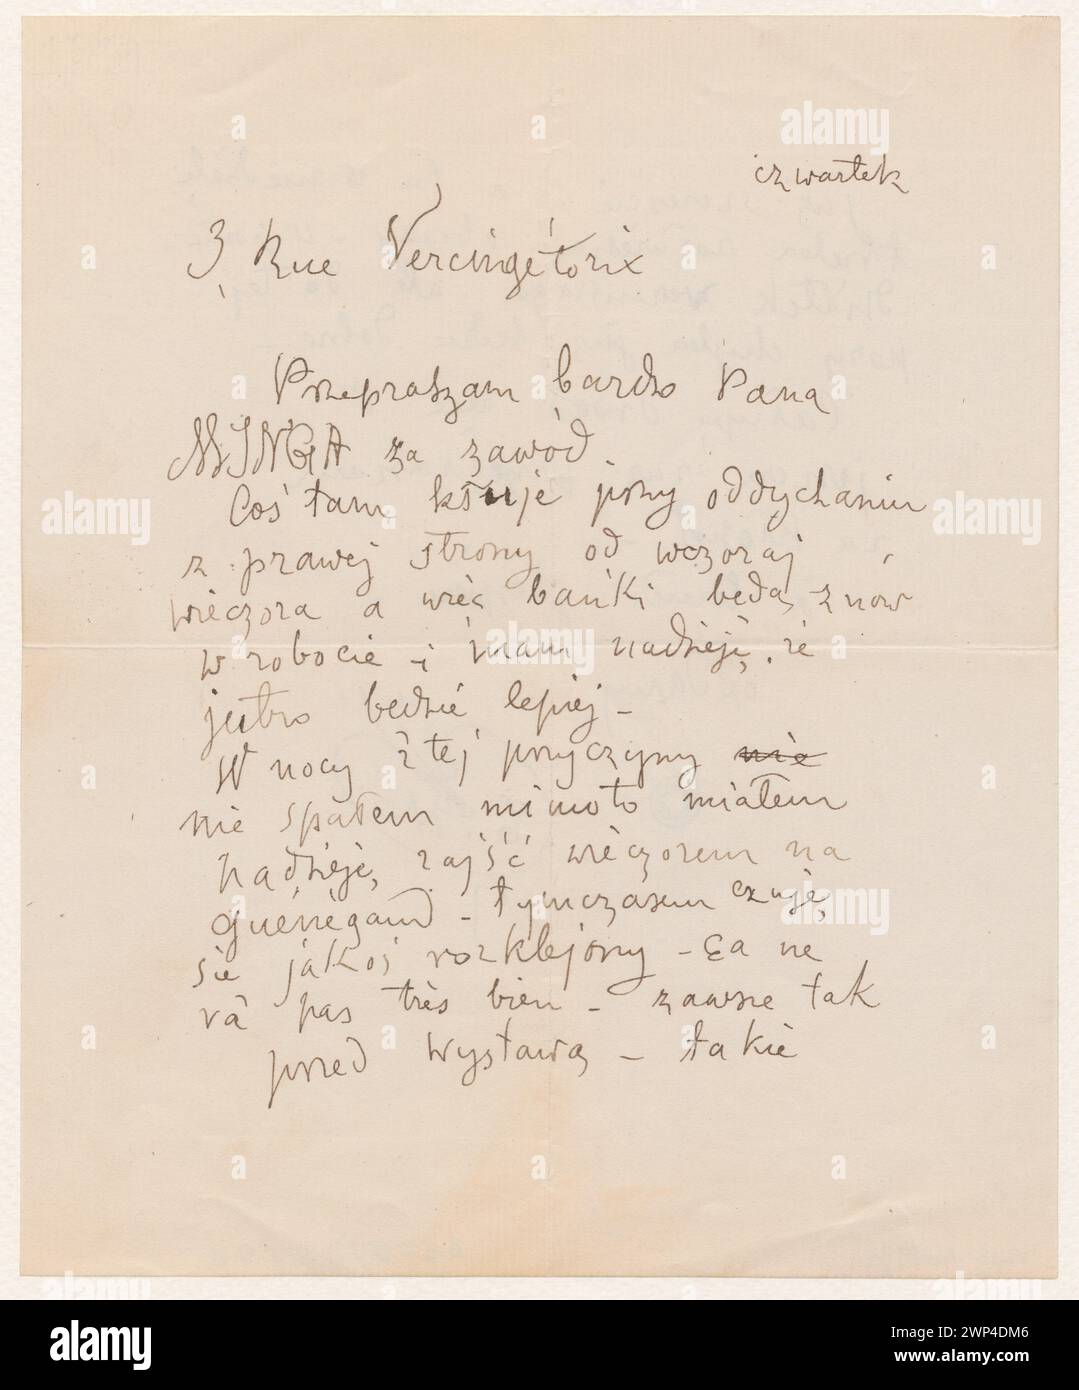 czwartek
3, Rue Vercingétorix
Przepraszam bardzo Pana
MINGA za zawód.
Coś tam kłuje przy oddychaniu
z prawej strony od wczoraj
wieczora a więc bańki będą znów
w robocie – i mam nadzieję, że
jutro będzie lepiej –
W nocy z tej przyczyny nie
nie spałem mimoto miałem
nadzieję, zajść wieczorem na
guénégaud – tymczasem czuję,
sie jakoś rozklejony – Ça ne
va pas très bien – zawsze tak
przed wystawą – takie
alamy
alamy
Image ID: 2WP4DM6
www.alamy.com